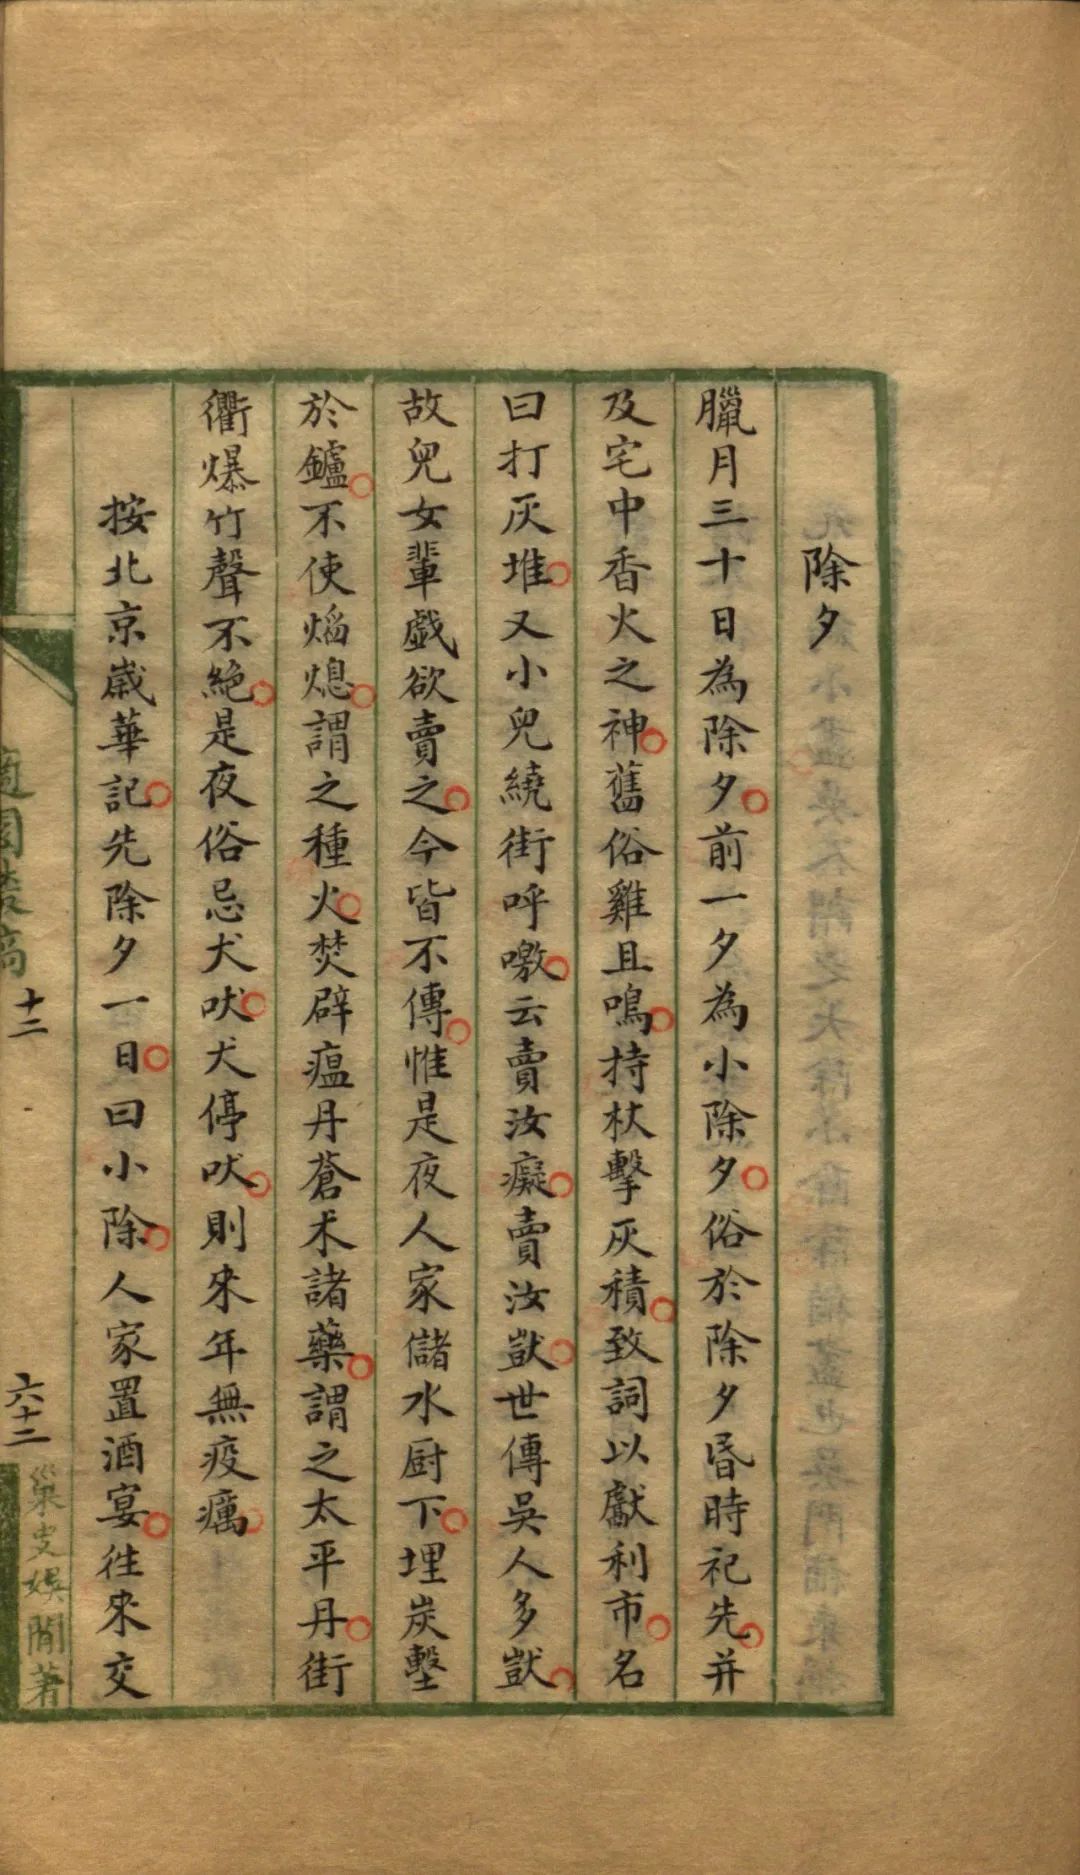 除夕
臘月三十日為除夕前一夕為小除夕俗於除夕昏時祀先并
及宅中香火之神舊俗雞且鳴持杖擊灰積致詞以獻利市名
曰打灰堆又小兒繞街呼噭云賣汝癡賣汝獃世傳吳人多獃
故兒女輩戯欲賣之今皆不傳惟是夜人家儲水厨下埋炭墼
於鑪不使熖熄謂之種火焚辟瘟丹蒼朮諸藥謂之太平丹街
衢爆竹聲不絕是夜俗忌犬吠犬停吠則來年無疫癘
按北京歲華記先除夕一日曰小除人家置酒宴往來交
適園叢稿
十二
六十二
巢史娛閒著